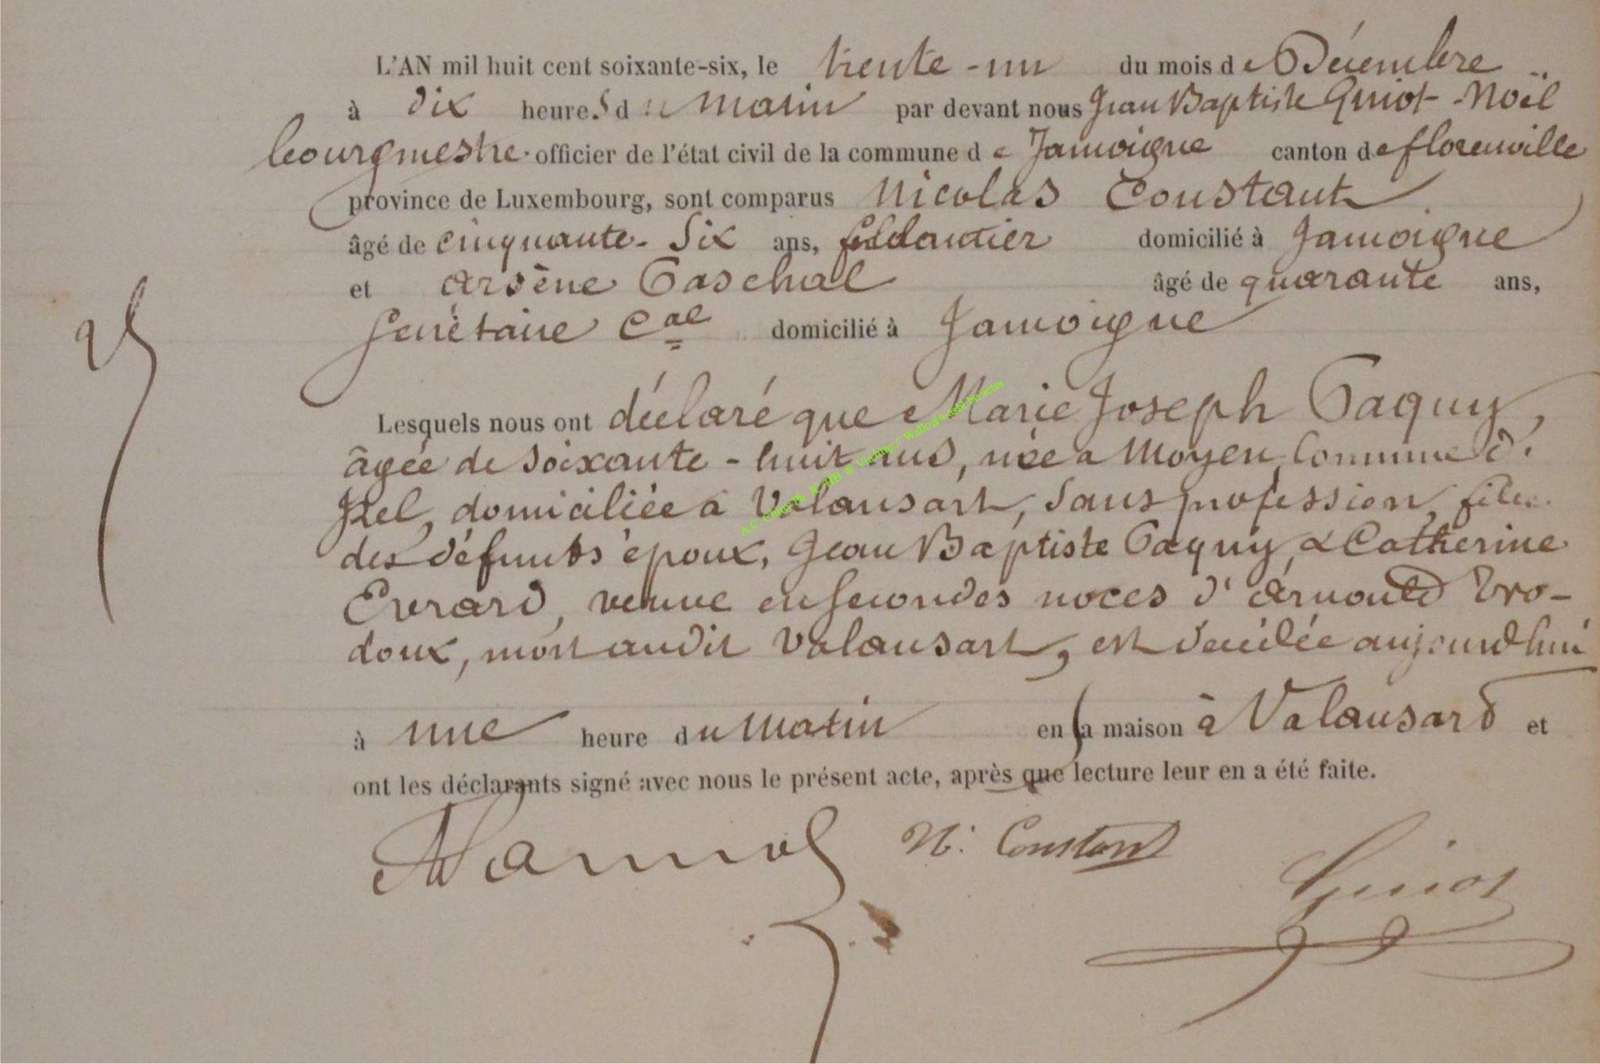 L'AN mil huit cent soixante-six, le trente-un du mois de Décembre
à dix heures du matin par devant nous Jean Baptiste Guiot-Noël
bourgmestre officier de l'état civil de la commune de Jamoigne canton de florenville
province de Luxembourg, sont comparus Nicolas Constant
âgé de cinquante-six ans, domicilié à Jamoigne
et Arsène Paschal âgé de quarante ans,
Secrétaire Cal domicilié à Jamoigne
25
Lesquels nous ont déclaré que Marie Joseph Paquy,
âgée de soixante-huit ans, née à Moyen, Commune d'
Izel, domiciliée à Valansart, sans profession, fille
des défunts époux, Jean Baptiste Paquy & Catherine
Evrard, veuve en secondes noces d'Arnould Pro-
doux, mort audit Valansart, est décédée aujourd'hui
à une heure du matin en sa maison à Valansard et
ont les déclarants signé avec nous le présent acte, après que lecture leur en a été faite.
N. Constant
Guiot